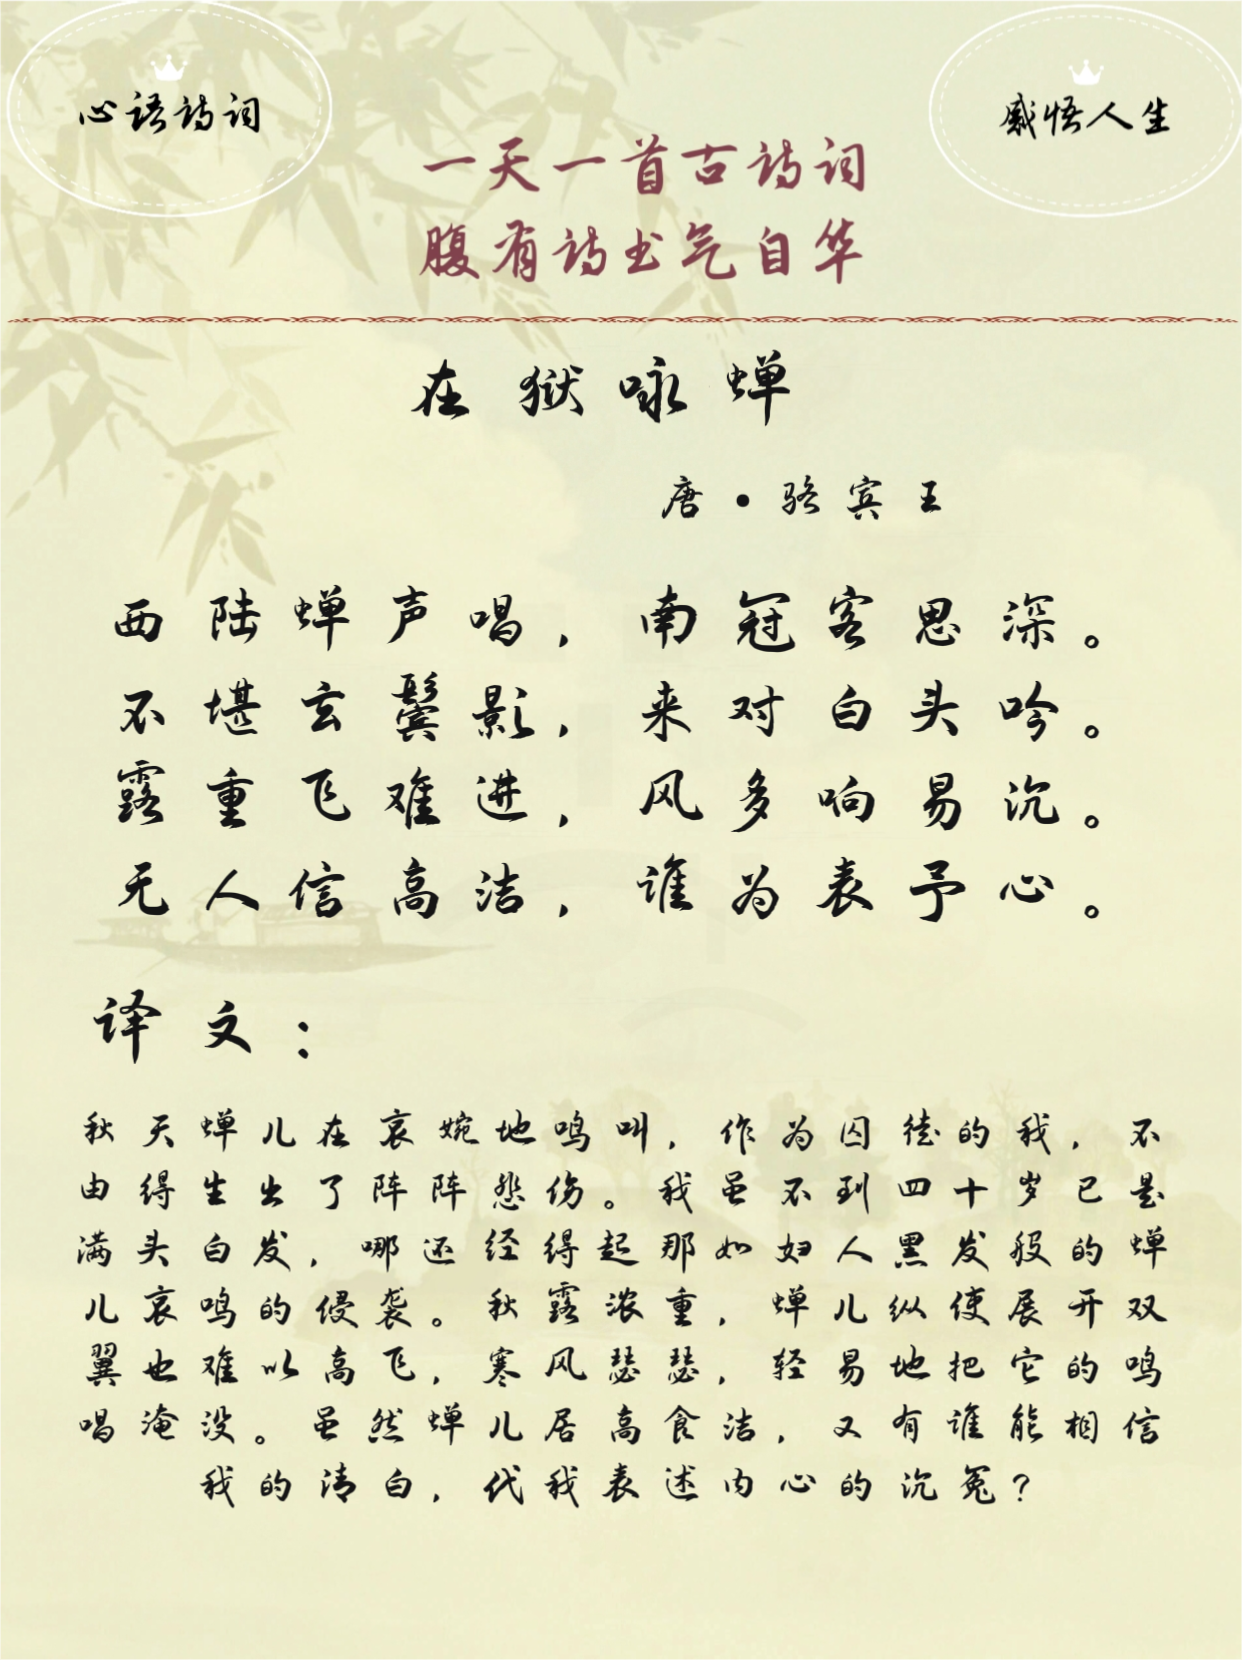 心语诗词
感悟人生
一天一首古诗词
腹有诗书气自华
在狱咏蝉
唐·骆宾王
西陆蝉声唱，南冠客思深。
不堪玄鬓影，来对白头吟。
露重飞难进，风多响易沉。
无人信高洁，谁为表予心。
译文：
秋天蝉儿在哀婉地鸣叫，作为囚徒的我，不
由得生出了阵阵悲伤。我虽不到四十岁已是
满头白发，哪还经得起那如妇人黑发般的蝉
儿哀鸣的侵袭。秋露浓重，蝉儿纵使展开双
翼也难以高飞，寒风瑟瑟，轻易地把它的鸣
唱淹没。虽然蝉儿居高食洁，又有谁能相信
我的清白，代我表述内心的沉冤？